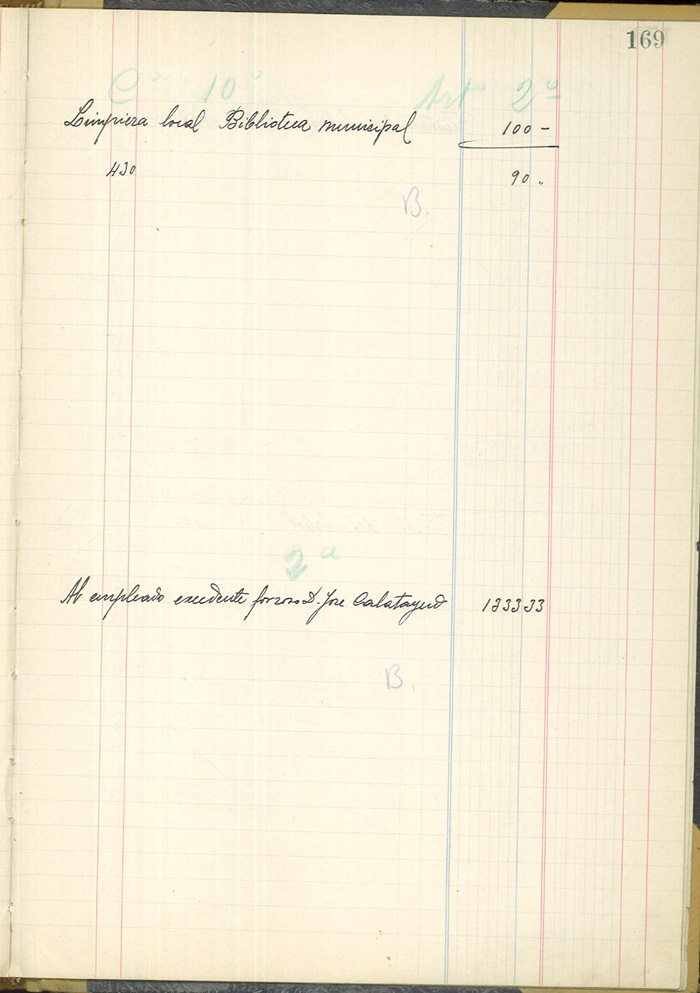 169
Cº 10º Artº 2º
Limpieza local Biblioteca municipal 100 -
430 90 "
B.
2ª
Al empleado excedente forzoso D. Jose Calatayud 1333 33
B.